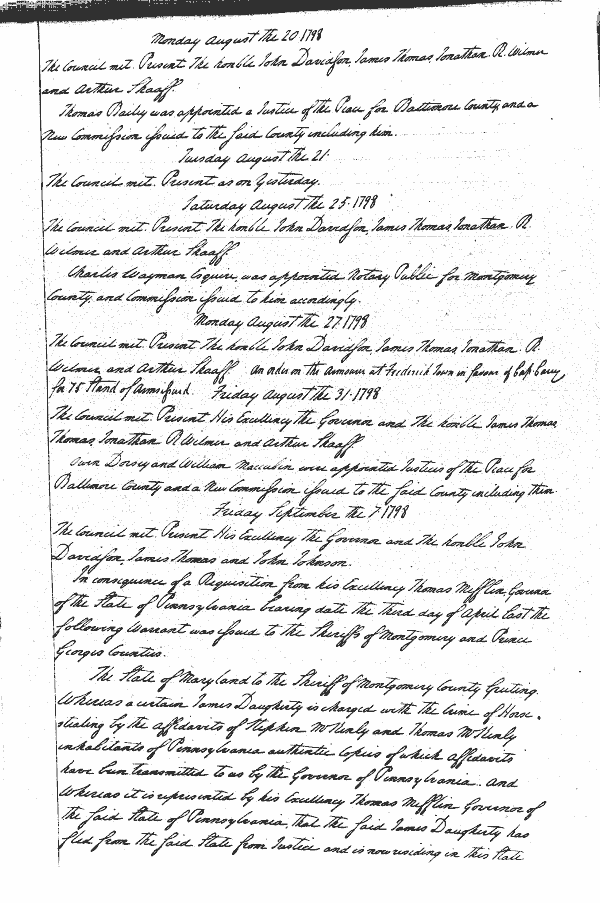 Monday August the 20 1798
The Council met. Present The honble John Davidson, James Thomas, Jonathan R. Wilmer
and Arthur Shaaff.
Thomas Bailey was appointed a Justice of the Peace for Baltimore County, and a
New Commission issued to the said County including him.
Tuesday August the 21.
The Council met. Present as on Yesterday.
Saturday August the 25. 1798
The Council met. Present The honble John Davidson, James Thomas, Jonathan R.
Wilmer and Arthur Shaaff.
Charles Wayman Esquire, was appointed Notary Public for Montgomery
County, and Commission issued to him accordingly.
Monday August the 27. 1798
The Council met. Present The honble John Davidson, James Thomas, Jonathan R.
Wilmer, and Arthur Shaaff. An order on the Armourer at Frederick Town in favour of Capt
for 75 Stand of Arms issued. Friday August the 31. 1798
The Council met. Present His Excellency the Governor and The honble James Thomas,
Thomas, Jonathan R. Wilmer and Arthur Shaaff.
Owen Dorsey and William Maccubin were appointed Justices of the Peace for
Baltimore County and a New Commission issued to the said County including them.
Friday September the 7 1798
The Council met. Present His Excellency the Governor and The honble John
Davidson, James Thomas and John Johnson.
In consequence of a Requisition from his Excellency Thomas Mifflin, Governor
of the State of Pennsylvania bearing date the third day of April last the
following Warrant was issued to the Sheriffs of Montgomery and Prince
Georges Counties.
The State of Maryland to the Sheriff of Montgomery County Greeting.
Whereas a certain James Daugherty is charged with the Crime of Horse-
stealing by the affidavits of Stephen McKinly and Thomas McKinly
inhabitants of Pennsylvania authentic Copies of which affidavits
have been transmitted to us by the Governor of Pennsylvania. And
Whereas it is represented by his Excellency Thomas Mifflin Governor of
the said State of Pennsylvania, that the said James Daugherty has
fled from the said State from Justice and is now residing in this State